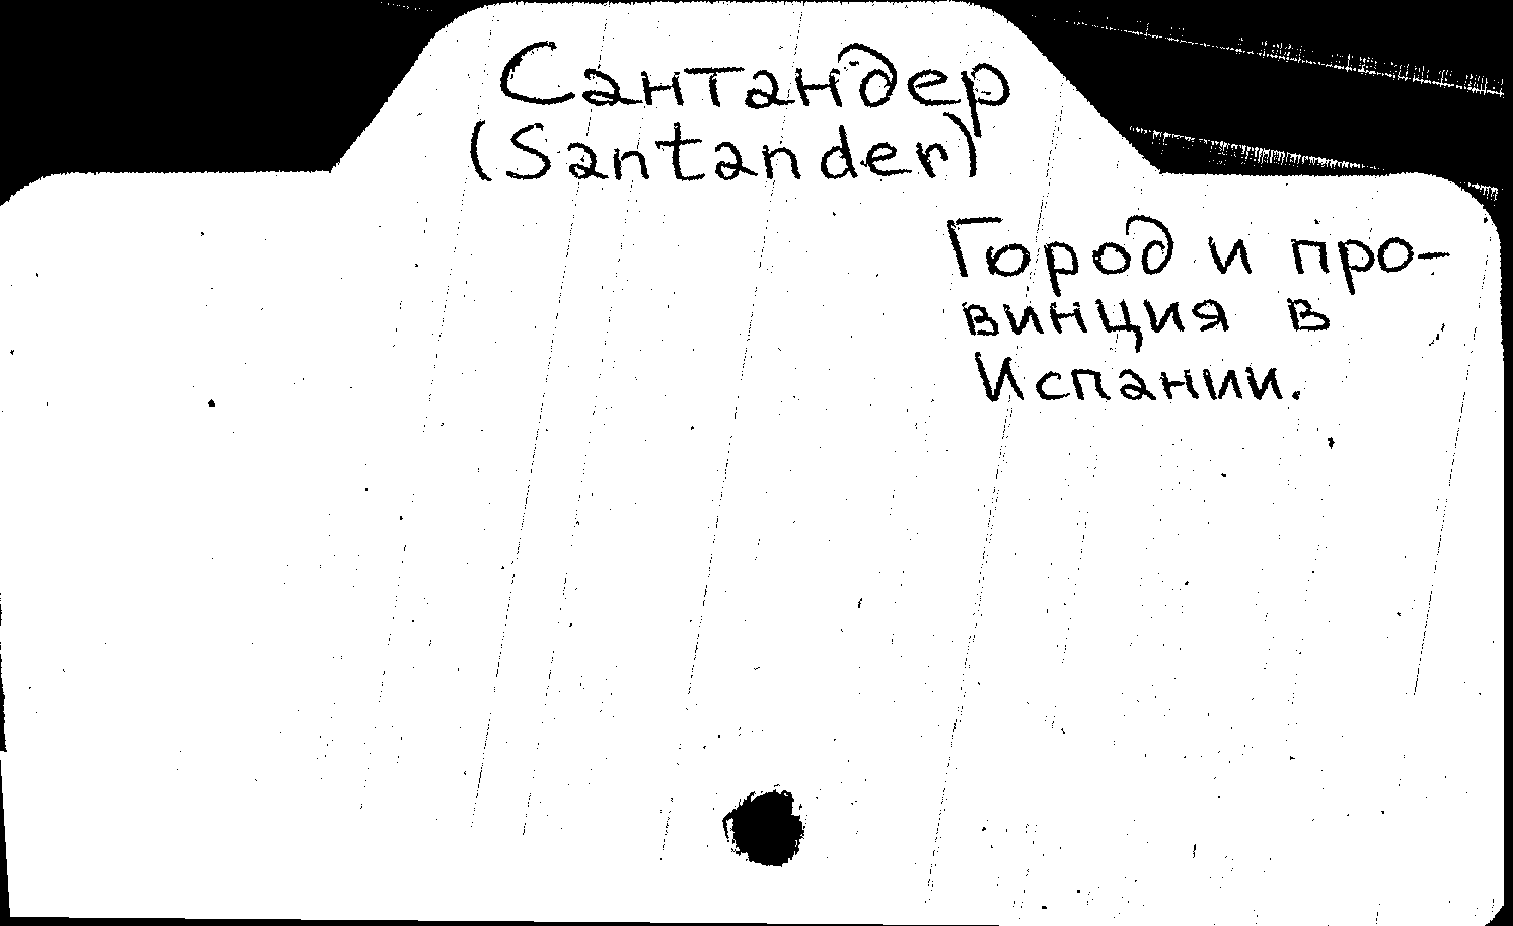 Сантандер
(Santander)
Город и про-
винция в
Испании.